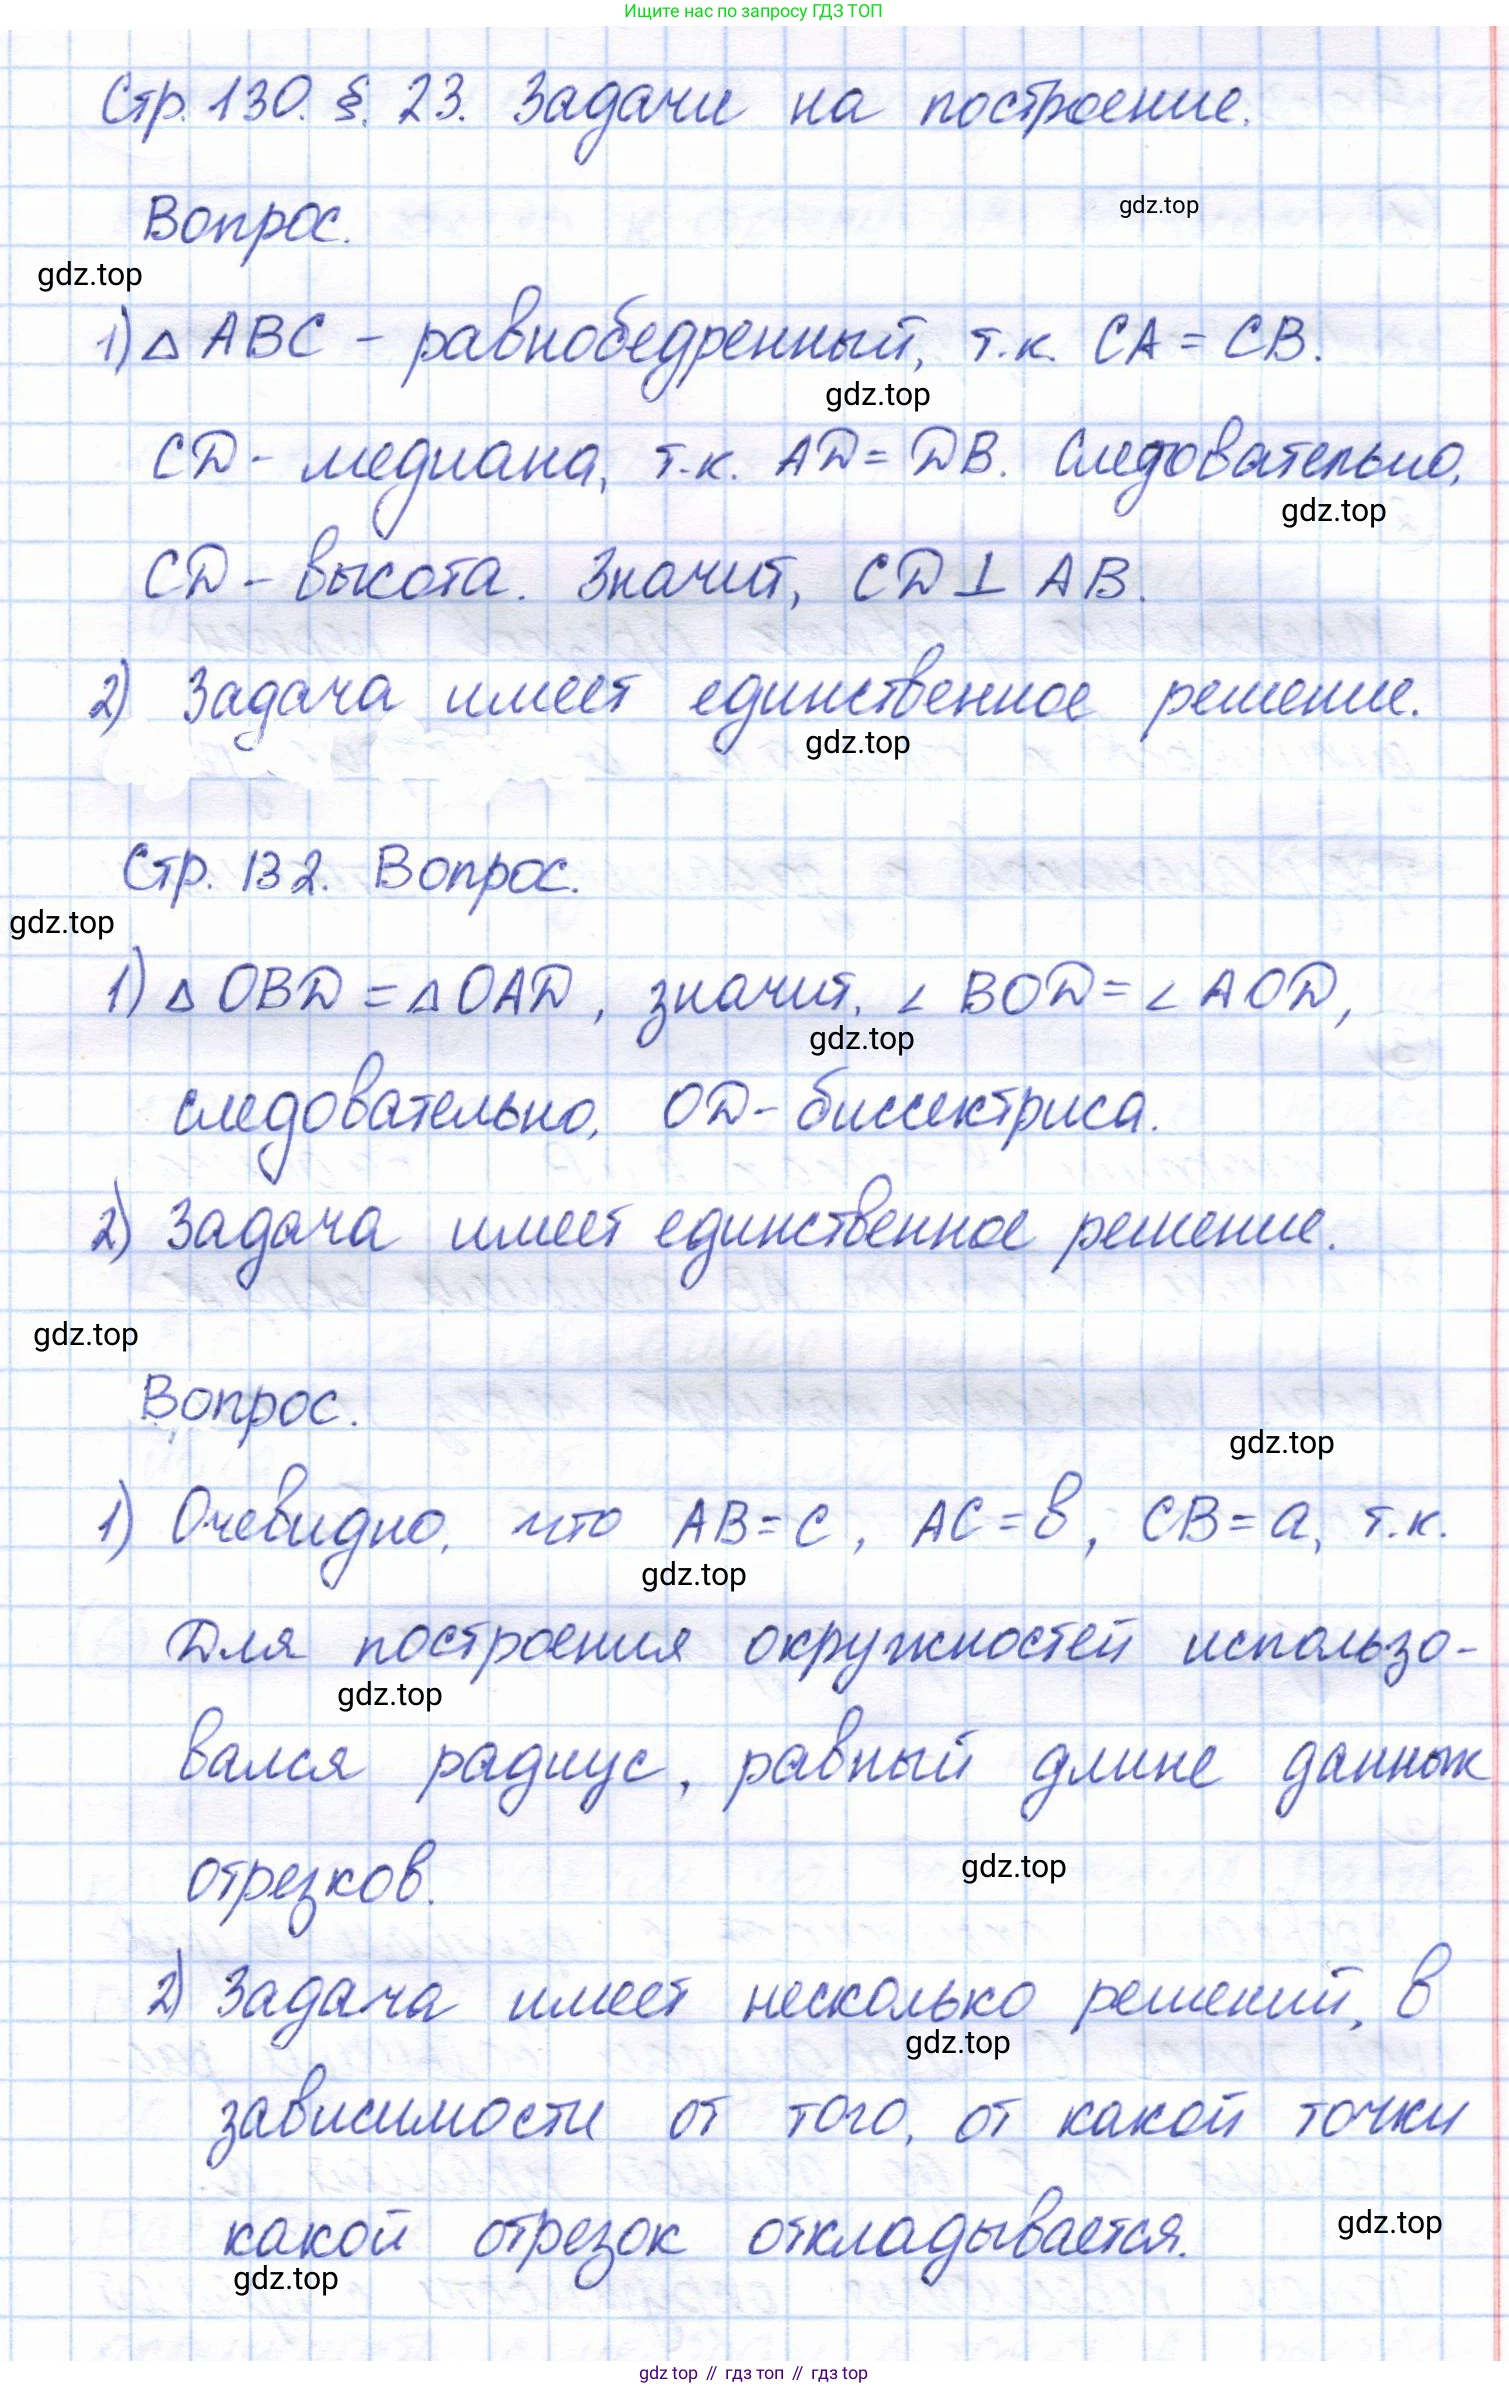 Ищите нас по запросу ГДЗ ТОП
Стр. 130. §. 23. Задачи на построение.
gdz.top
Вопрос.
gdz.top
1) △ ABC - равнобедренный, т.к. CA = CB.
gdz.top
CD - медиана, т.к. AD = DB. Следовательно,
gdz.top
CD - высота. Значит, CD ⊥ AB.
2) Задача имеет единственное решение.
gdz.top
Стр. 132. Вопрос.
gdz.top
1) △ OBD = △ OAD, значит, ∠ BOD = ∠ AOD,
gdz.top
следовательно, OD - биссектриса.
2) Задача имеет единственное решение.
gdz.top
Вопрос.
gdz.top
1) Очевидно, что AB = c, AC = b, CB = a, т.к.
gdz.top
Для построения окружностей использо-
gdz.top
вался радиус, равный длине данных
отрезков.
gdz.top
2) Задача имеет несколько решений, в
gdz.top
зависимости от того, от какой точки
какой отрезок откладывается.
gdz.top
gdz.top
gdz top // гдз топ // гдз top